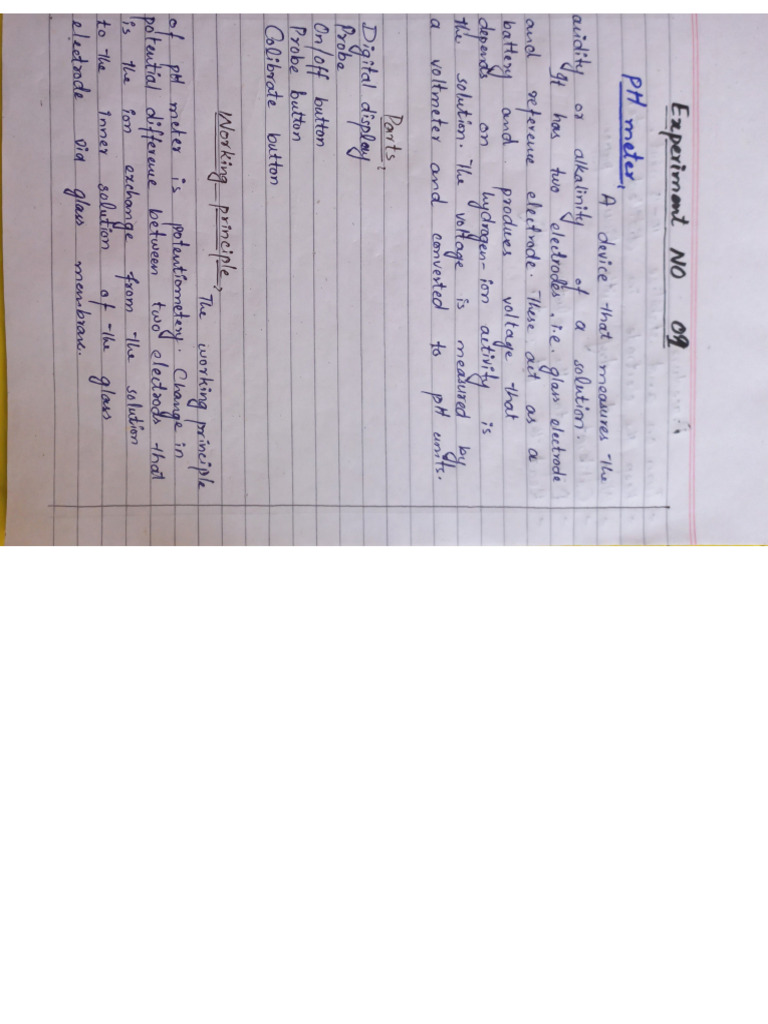 Experiment NO 09
PH meter,
A device that measures the
acidity or alkalinity of a solution.
It has two electrodes, i.e. glass electrode
and reference electrode. These act as a
battery and produces voltage that
depends on hydrogen-ion activity is
the solution. The voltage is measured by
a voltmeter and converted to pH units.
Parts:
Digital display
Probe
On/off button
Probe button
Calibrate button
Working principle,
The working principle
of pH meter is potentiometery. Change in
potential difference between two electrods that
is the ion exchange from the solution
to the inner solution of the glass
electrode via glass membrane.